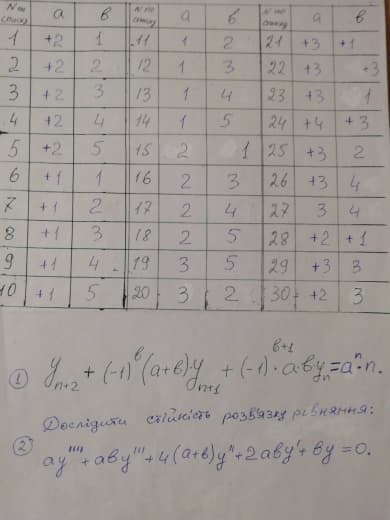 № по списку a в № по списку a в № по списку a в
1 +2 1 11 1 2 21 +3 +1
2 +2 2 12 1 3 22 +3 +3
3 +2 3 13 1 4 23 +3 1
4 +2 4 14 1 5 24 +4 +3
5 +2 5 15 2 1 25 +3 2
6 +1 1 16 2 3 26 +3 4
7 +1 2 17 2 4 27 3 4
8 +1 3 18 2 5 28 +2 +1
9 +1 4 19 3 5 29 +3 3
10 +1 5 20 3 2 30 +2 3
① yₙ₊₂ + (-1)ᵇ(a+в)·yₙ₊₁ + (-1)ᵇ⁺¹·a·вyₙ = aⁿ·n.
Дослідити стійкість розв'язку рівняння:
② ay'''' + aвy''' + 4(a+в)y'' + 2aвy' + вy = 0.